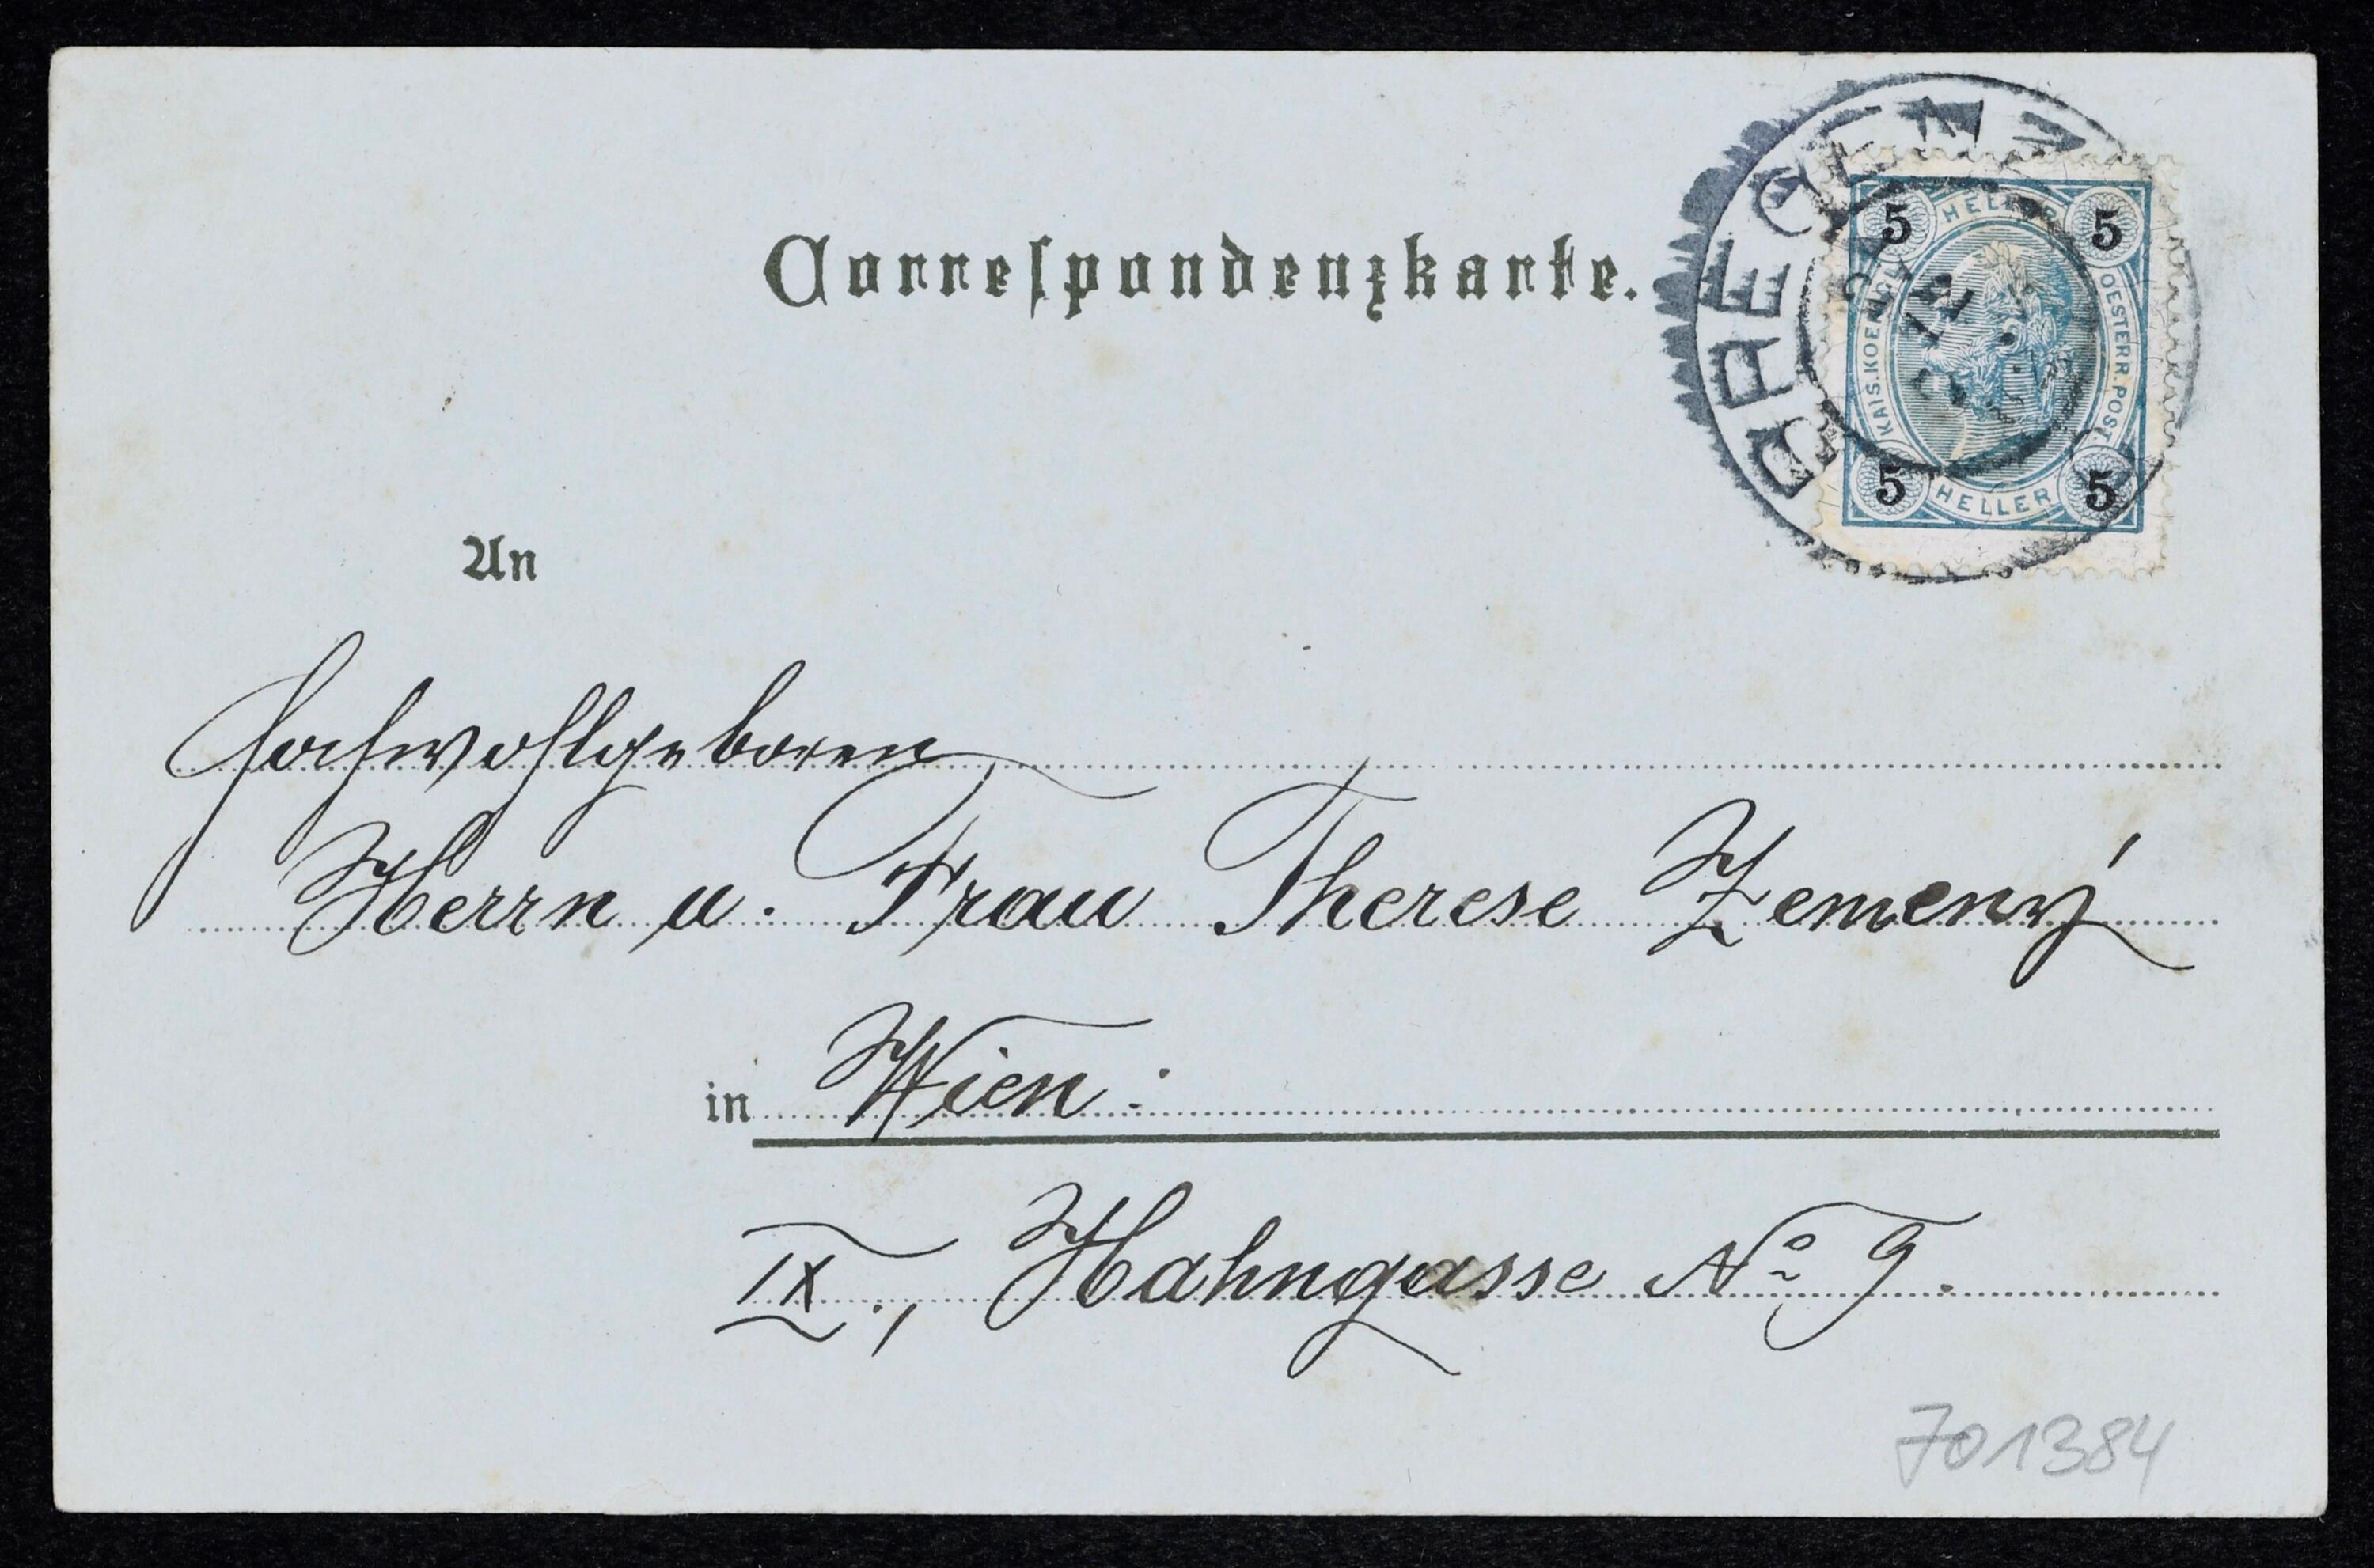 Correspondenzkarte.
BREGENZ
5 HELLER 5
KAIS. KOENIGL.
OESTERR. POST.
5 HELLER 5
An
Hochwohlgeboren
Herrn u. Frau Therese Zemený
in Wien:
IX., Hahngasse No 9.
701384